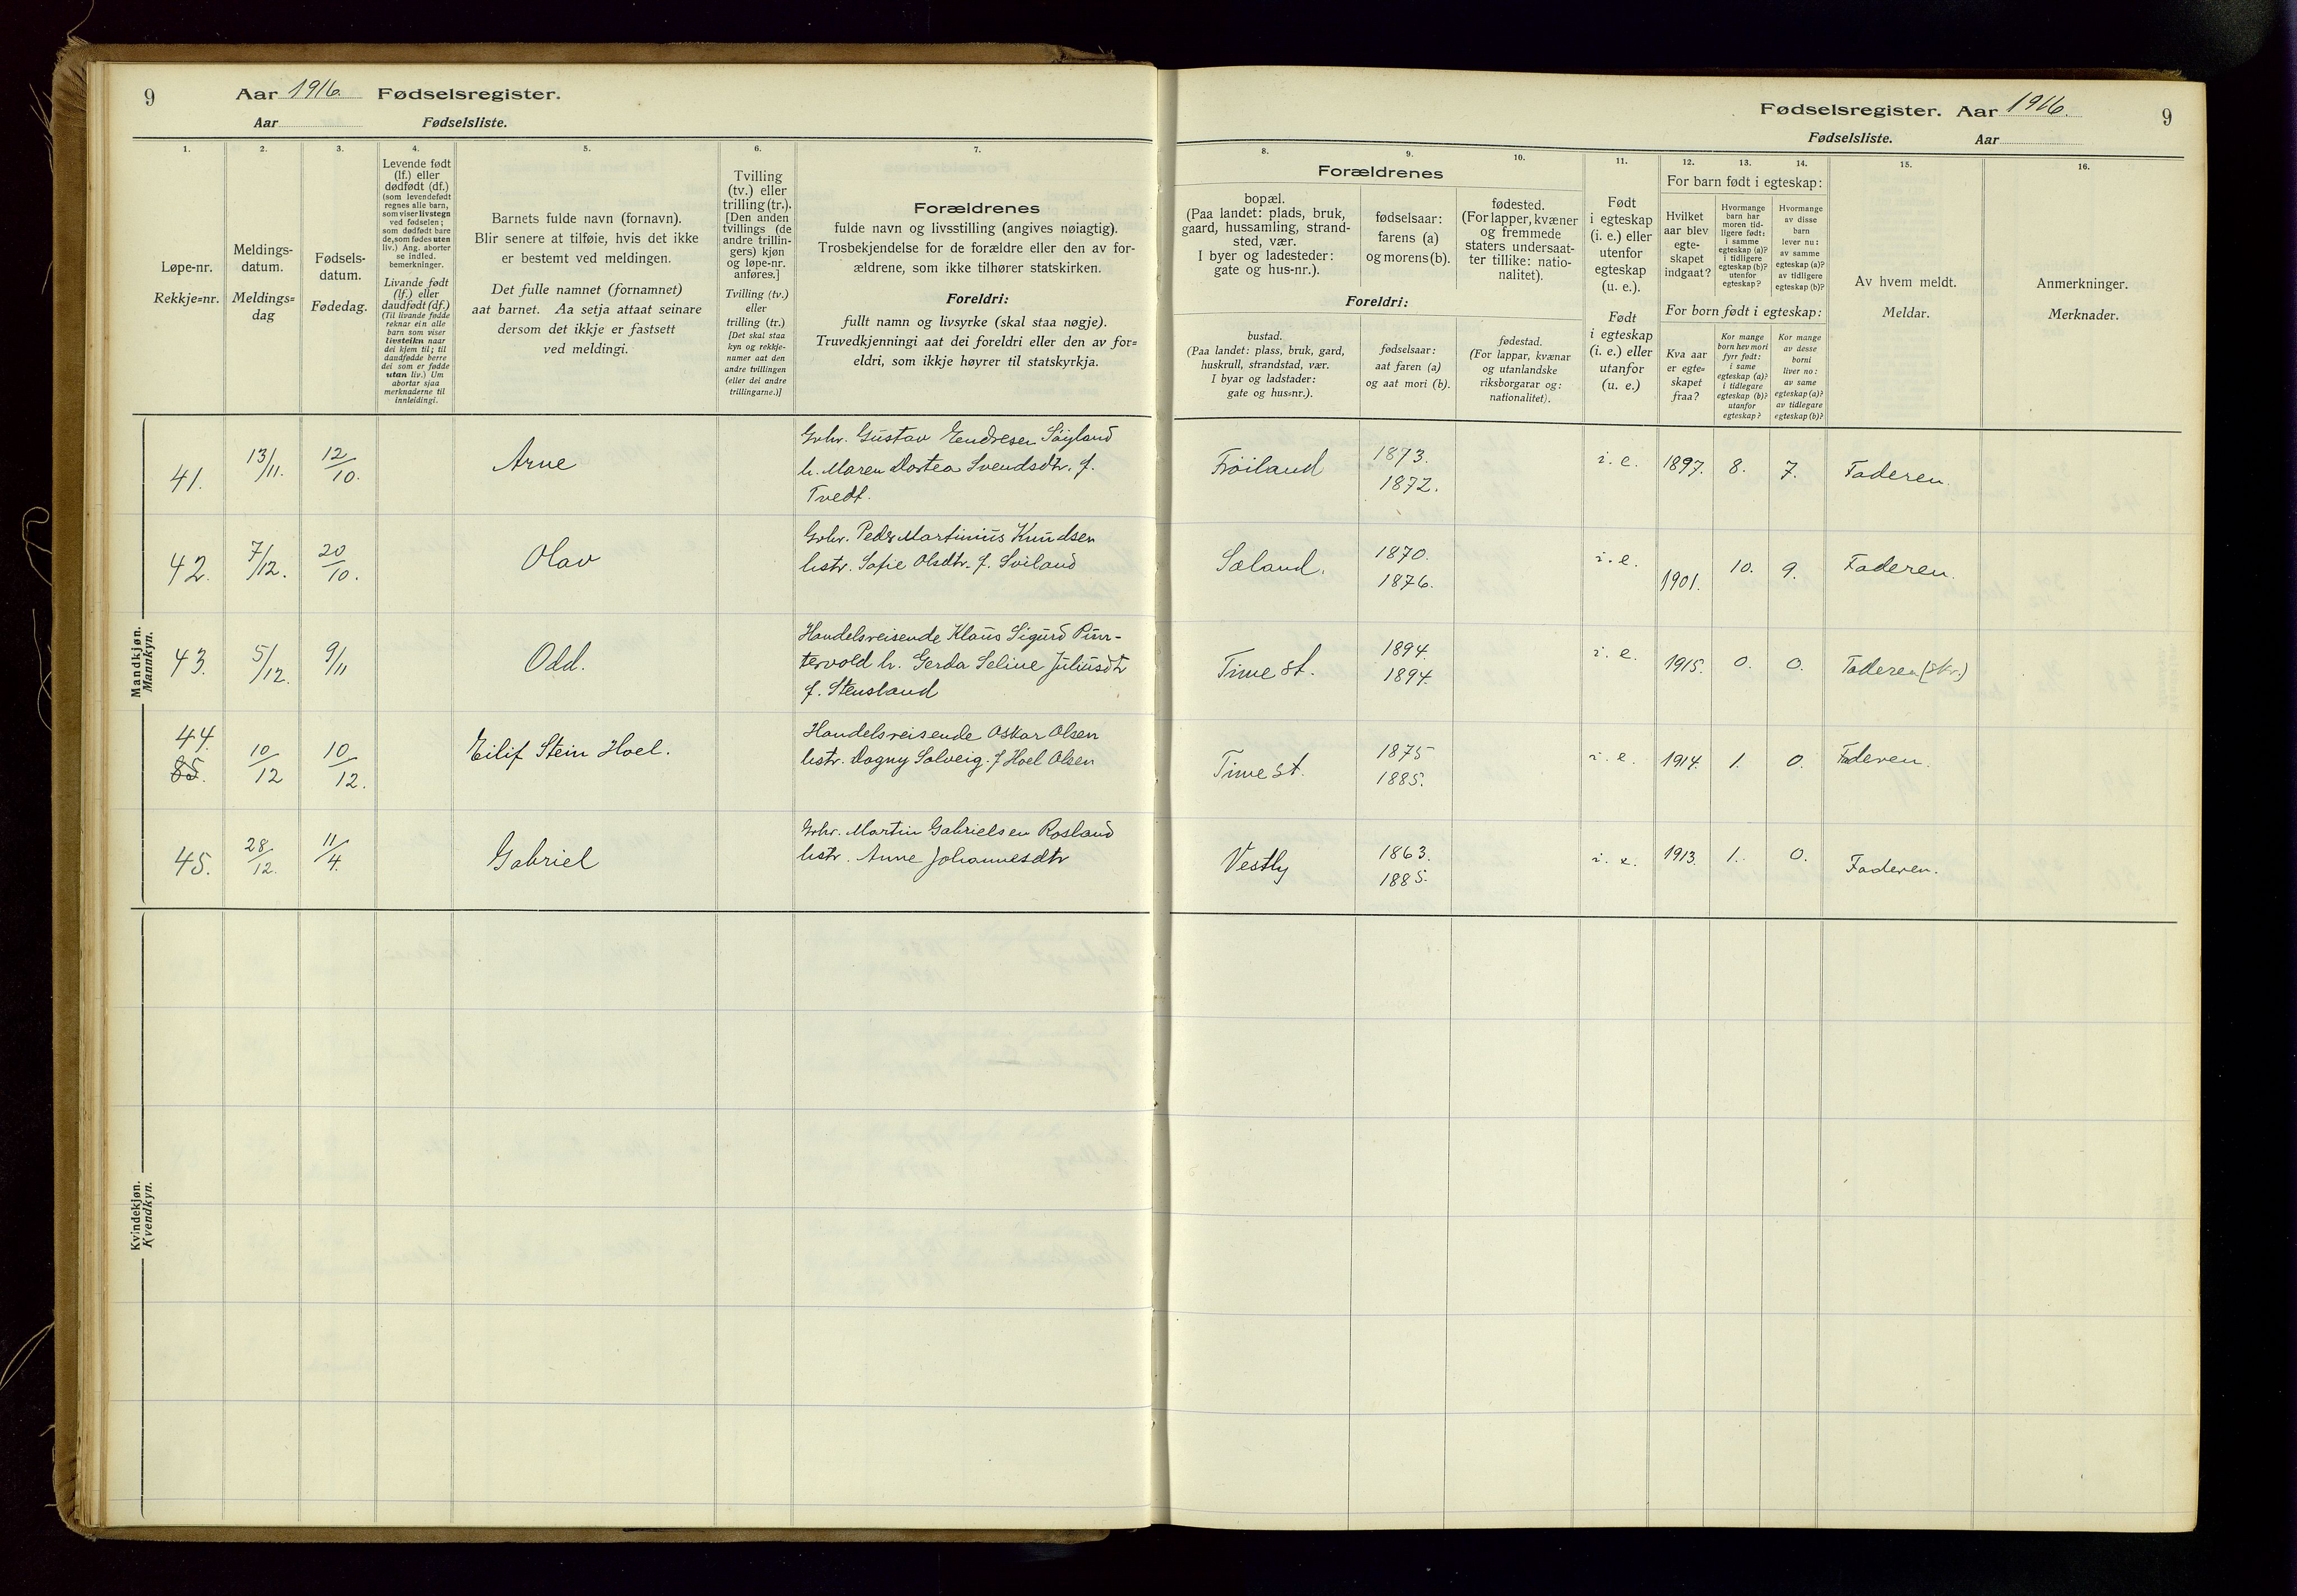 9
Aar 1916. Fødselsregister.
Aar Fødselsliste.
1.
2.
3.
4.
5.
6.
7.
Løpe-nr.
Rekkje=nr.
Meldings-
datum.
Meldings=
dag
Fødsels-
datum.
Fødedag.
Levende født
(lf.) eller
dødfødt (df.)
(som levendefødt
regnes alle barn,
som viser livstegn
ved fødselen;
som dødfødt bare
de, som fødes uten
liv.) Ang. aborter
se indled.
bemerkninger.
Livande født
(lf.) eller
daudfødt (df.)
(Til livande fødde
reknar ein alle
barn som viser
livsteikn naar
dei kjem til; til
daudfødde berre
dei som er fødde
utan liv.) Um
abortar sjaa
merknaderne til
innleidingi.
Barnets fulde navn (fornavn).
Blir senere at tilføie, hvis det ikke
er bestemt ved meldingen.
Det fulle namnet (fornamnet)
aat barnet. Aa setja attaat seinare
dersom det ikkje er fastsett
ved meldingi.
Tvilling
(tv.) eller
trilling (tr.).
[Den anden
tvillings (de
andre trillin-
gers) kjøn
og løpe-nr.
anføres.]
Tvilling (tv.)
eller
trilling (tr.)
[Det skal staa
kyn og rekkje-
numer aat den
andre tvillingen
(eller dei andre
trillingarne.)]
Forældrenes
fulde navn og livsstilling (angives nøiagtig).
Trosbekjendelse for de forældre eller den av for-
ældrene, som ikke tilhører statskirken.
Foreldri:
fullt namn og livsyrke (skal staa nøgje).
Truvedkjenningi aat dei foreldri eller den av for=
eldri, som ikkje høyrer til statskyrkja.
Mandkjøn.
Mannkyn.
41.
13/11.
12/10.
Arne
Grbr. Gustav Endresen Søyland
h. Maren Dortea Svendsdtr. f.
Tvedt.
42.
7/12.
20/10.
Olav
Grbr. Peder Martinius Knudsen
hstr. Sofie Olsdtr. f. Sviland
43.
5/12.
9/11
Odd.
Handelsreisende Klaus Sigurd
h. Gerda Seline Juliusdtr
f. Stensland
44.
85.
10/12
10/12.
Eilif Stein Hoel.
Handelsreisende Oskar Olsen
hstr. Dagny Solveig. f Hoel Olsen
45.
28/12.
11/4.
Gabriel
Grbr. Martin Gabrielsen Rosland
hstr. Anne Johannesdtr
Kvindekjøn.
Kvendkyn.
Fødselsregister. Aar 1916.
9
Fødselsliste. Aar
8.
9.
10.
11.
12.
13.
14.
15.
16.
Forældrenes
bopæl.
(Paa landet: plads, bruk,
gaard, hussamling, strand-
sted, vær.
I byer og ladesteder:
gate og hus-nr.).
fødselsaar:
farens (a)
og morens (b).
fødested.
(For lapper, kvæner
og fremmede
staters undersaat-
ter tillike: natio-
nalitet).
Foreldri:
bustad.
(Paa landet: plass, bruk, gard,
huskrull, strandstad, vær.
I byar og ladstader:
gate og hus=nr.).
fødselsaar:
aat faren (a)
og aat mori (b).
fødestad.
(For lappar, kvænar
og utanlandske
riksborgarar og:
nationalitet).
Født
i egteskap
(i. e.) eller
utenfor
egteskap
(u. e.).
Født
i egteskap
(i. e.) eller
utanfor
(u. e.)
For barn født i egteskap:
Hvilket
aar blev
egte-
skapet
indgaat?
Hvormange
barn har
moren tid-
ligere født:
i samme
egteskap (a)?
i tidligere
egteskap (b)?
utenfor
egteskap?
Hvormange
av disse
barn
lever nu:
av samme
egteskap (a)?
av tidligere
egteskap (b)?
For born født i egteskap:
Kva aar
er egte=
skapet
fraa?
Kor mange
born hev mori
fyrr født:
i same
egteskap (a)?
i tidlegare
egteskap (b)?
utanfor
egteskap?
Kor mange
av desse
borni
liver no:
av same
egteskap (a)?
av tidlegare
egteskap (b)?
Av hvem meldt.
Meldar.
Anmerkninger.
Merknader.
Frøiland
1873.
1872.
i. e.
1897.
8.
7.
Faderen.
Sæland.
1870.
1876.
i. e.
1901.
10.
9.
Faderen.
Time st.
1894.
1894.
i. e.
1915.
0.
0.
Faderen (skr.)
Time st.
1875
1885.
i. e.
1914.
1.
0.
Faderen.
Vestly
1863.
1885.
i. e.
1913.
1.
0.
Faderen.